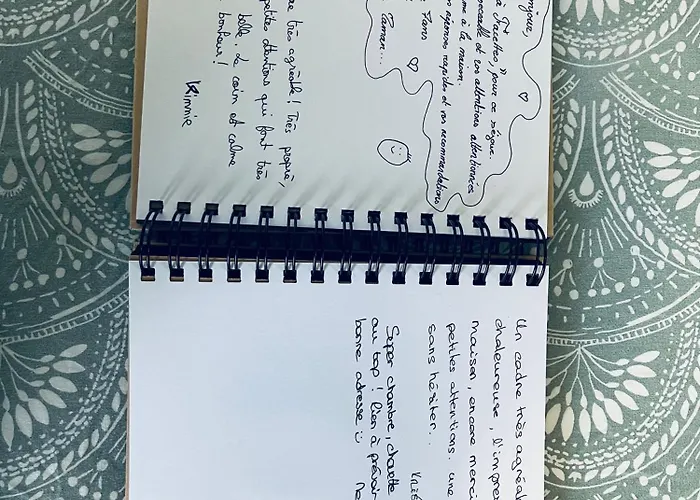 njour,
à Facettes, pour ce séjour.
et vos attentions attentionnées
me à la maison.
réponses rapides et vos recommandations
Paris
très agréable! Très propre,
petites attentions qui font très
belle. Le coin est calme
bonheur!
Kinnie
Un cadre très agréab
chaleureuse, l'impres
maison, encore merci
petites attentions. une
sans hésiter..
Super chambre, chouette
au top! Rien à prévoir
bonne adresse